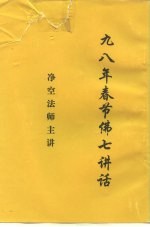 九八年春节佛七讲话
净空法师主讲